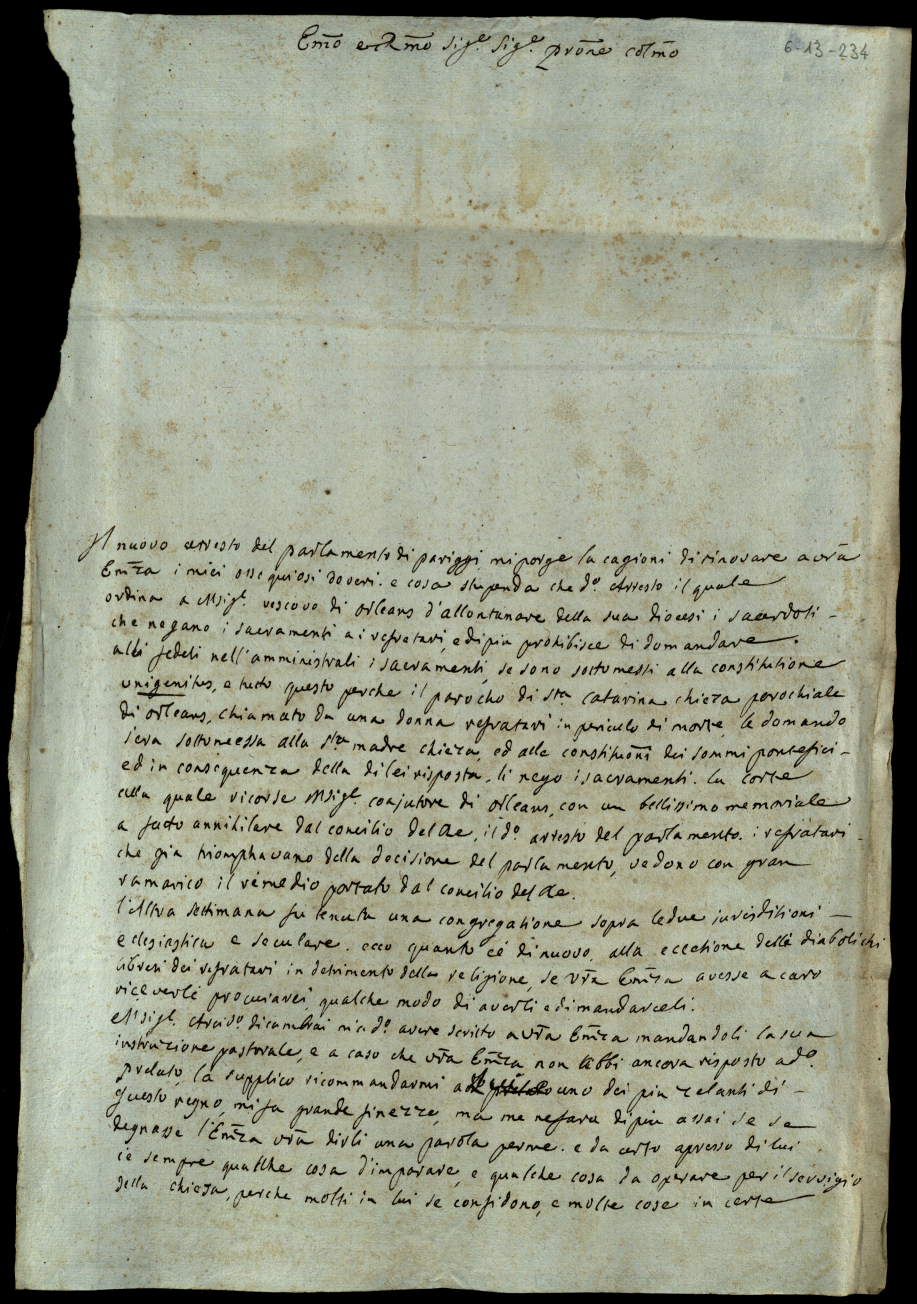 Em̃o e Rm̃o Sig.e Sig.e prõne colm̃o
6-13-234
Il nuovo arresto del parlamento di pariggi mi porge la cagioni di rinovare a vr̃a
Em̃za i miei ossequiosi doveri. e cosa stupenda che d.o Arresto il quale
ordina a Msig.r vescovo di orleans d'allontanare della sua diocesi i sacerdoti -
che negano i sacramenti ai refratari, e di piu prohibisce di domandare
alli fedeli nell'amministrali i sacramenti, se sono sottomessi alla constitutione
unigenitus, e tutto questo perche il parocho di s.ta catarina chieza parochiale
di orleans, chiamato da una donna refratari in periculo di morte, le domando
s'era sottomessa alla s.ta madre chieza, ed alle constituõni dei sommi pontefici -
ed in consequenza della di lei risposta, li nego i sacramenti. la corte
alla quale ricorse Msig.r conjutore di orleans, con un bellissimo memoriale
a facto annihilare dal concilio del Re, il d.o arresto del parlamento. i refratari -
che gia triomphavano della decisione del parlamento, vedono con gran
ramarico il remedio portato dal concilio del Re.
l'Altra settimana fu tenuta una congregatione sopra le due iurisditioni -
eclesiastica e seculare. ecco quanto c'é di nuovo, alla eccetione delle diabolichi
libreri dei refratari in detrimento della religione, se vr̃a Em̃za avesse a caro
riceverle procurarei qualche modo di averli e di mandarceli.
Msig.r Arciv.o di cambrai m'a d.o avere scritto a vr̃a Em̃za mandandoli la sua
instruzione pastorale, e a caso che vr̃a Em̃za non l'abbi ancora risposto a d.o
prelato, la supplico ricommandarmi a uno dei piu zelanti di -
questo regno, mi fa grande finezze, ma me ne fara di piu assai se se
degnasse l'Em̃za vr̃a dirli una parola per me. e da certo apresso di lui
c'e sempre qualche cosa d'imparare, e qualche cosa da operare per il servigio
della chieza, perche molti in lui se confidono, e molte cose in certe